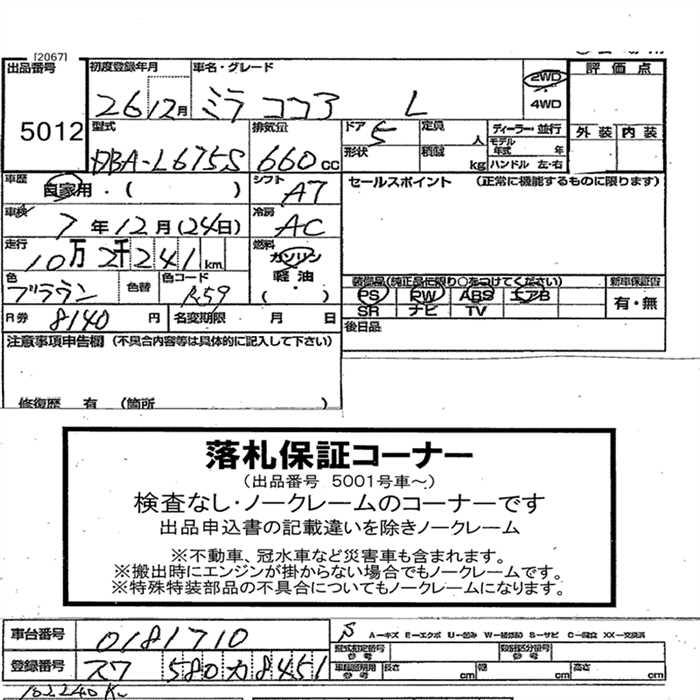 [2067]
出品番号 初度登録年月 車名・グレード 評価点
26 12月 ミラ ココア L 2WD・4WD
5012 型式 排気量 ドア 定員 ディーラー・並行 外装 内装
DBA-L675S 660cc 5 人 モデル年式 年
形状 積載 kg ハンドル 左・右
車歴 自家用・( ) シフト AT セールスポイント (正常に機能するものに限ります)
車検 7年12月(24日) 冷房 AC
走行 10万2千241km 燃料 ガソリン・軽油・( )
色 ブラウン 色替 色コード R59 装備品(純正品に限り○をつけてください) 新車保証書
PS PW ABS エアB 有・無
SR ナビ TV
R券 8140円 名変期限 月 日 後日品
注意事項申告欄 (不具合内容等は具体的に記入して下さい)
修復歴 有 (箇所 )
落札保証コーナー
(出品番号 5001号車~)
検査なし・ノークレームのコーナーです
出品申込書の記載違いを除きノークレーム
※不動車、冠水車など災害車も含まれます。
※搬出時にエンジンが掛からない場合でもノークレームです。
※特殊特装部品の不具合についてもノークレームになります。
車台番号 0181710 S A-キズ E-エクボ U-凹み W-補修跡 S-サビ C-腐食 XX-交換済
型式指定番号 参考 類別区分番号 参考
登録番号 スワ 580 カ 8451 車検証別用 参考 長さ cm 幅 cm 高さ cm
102240K